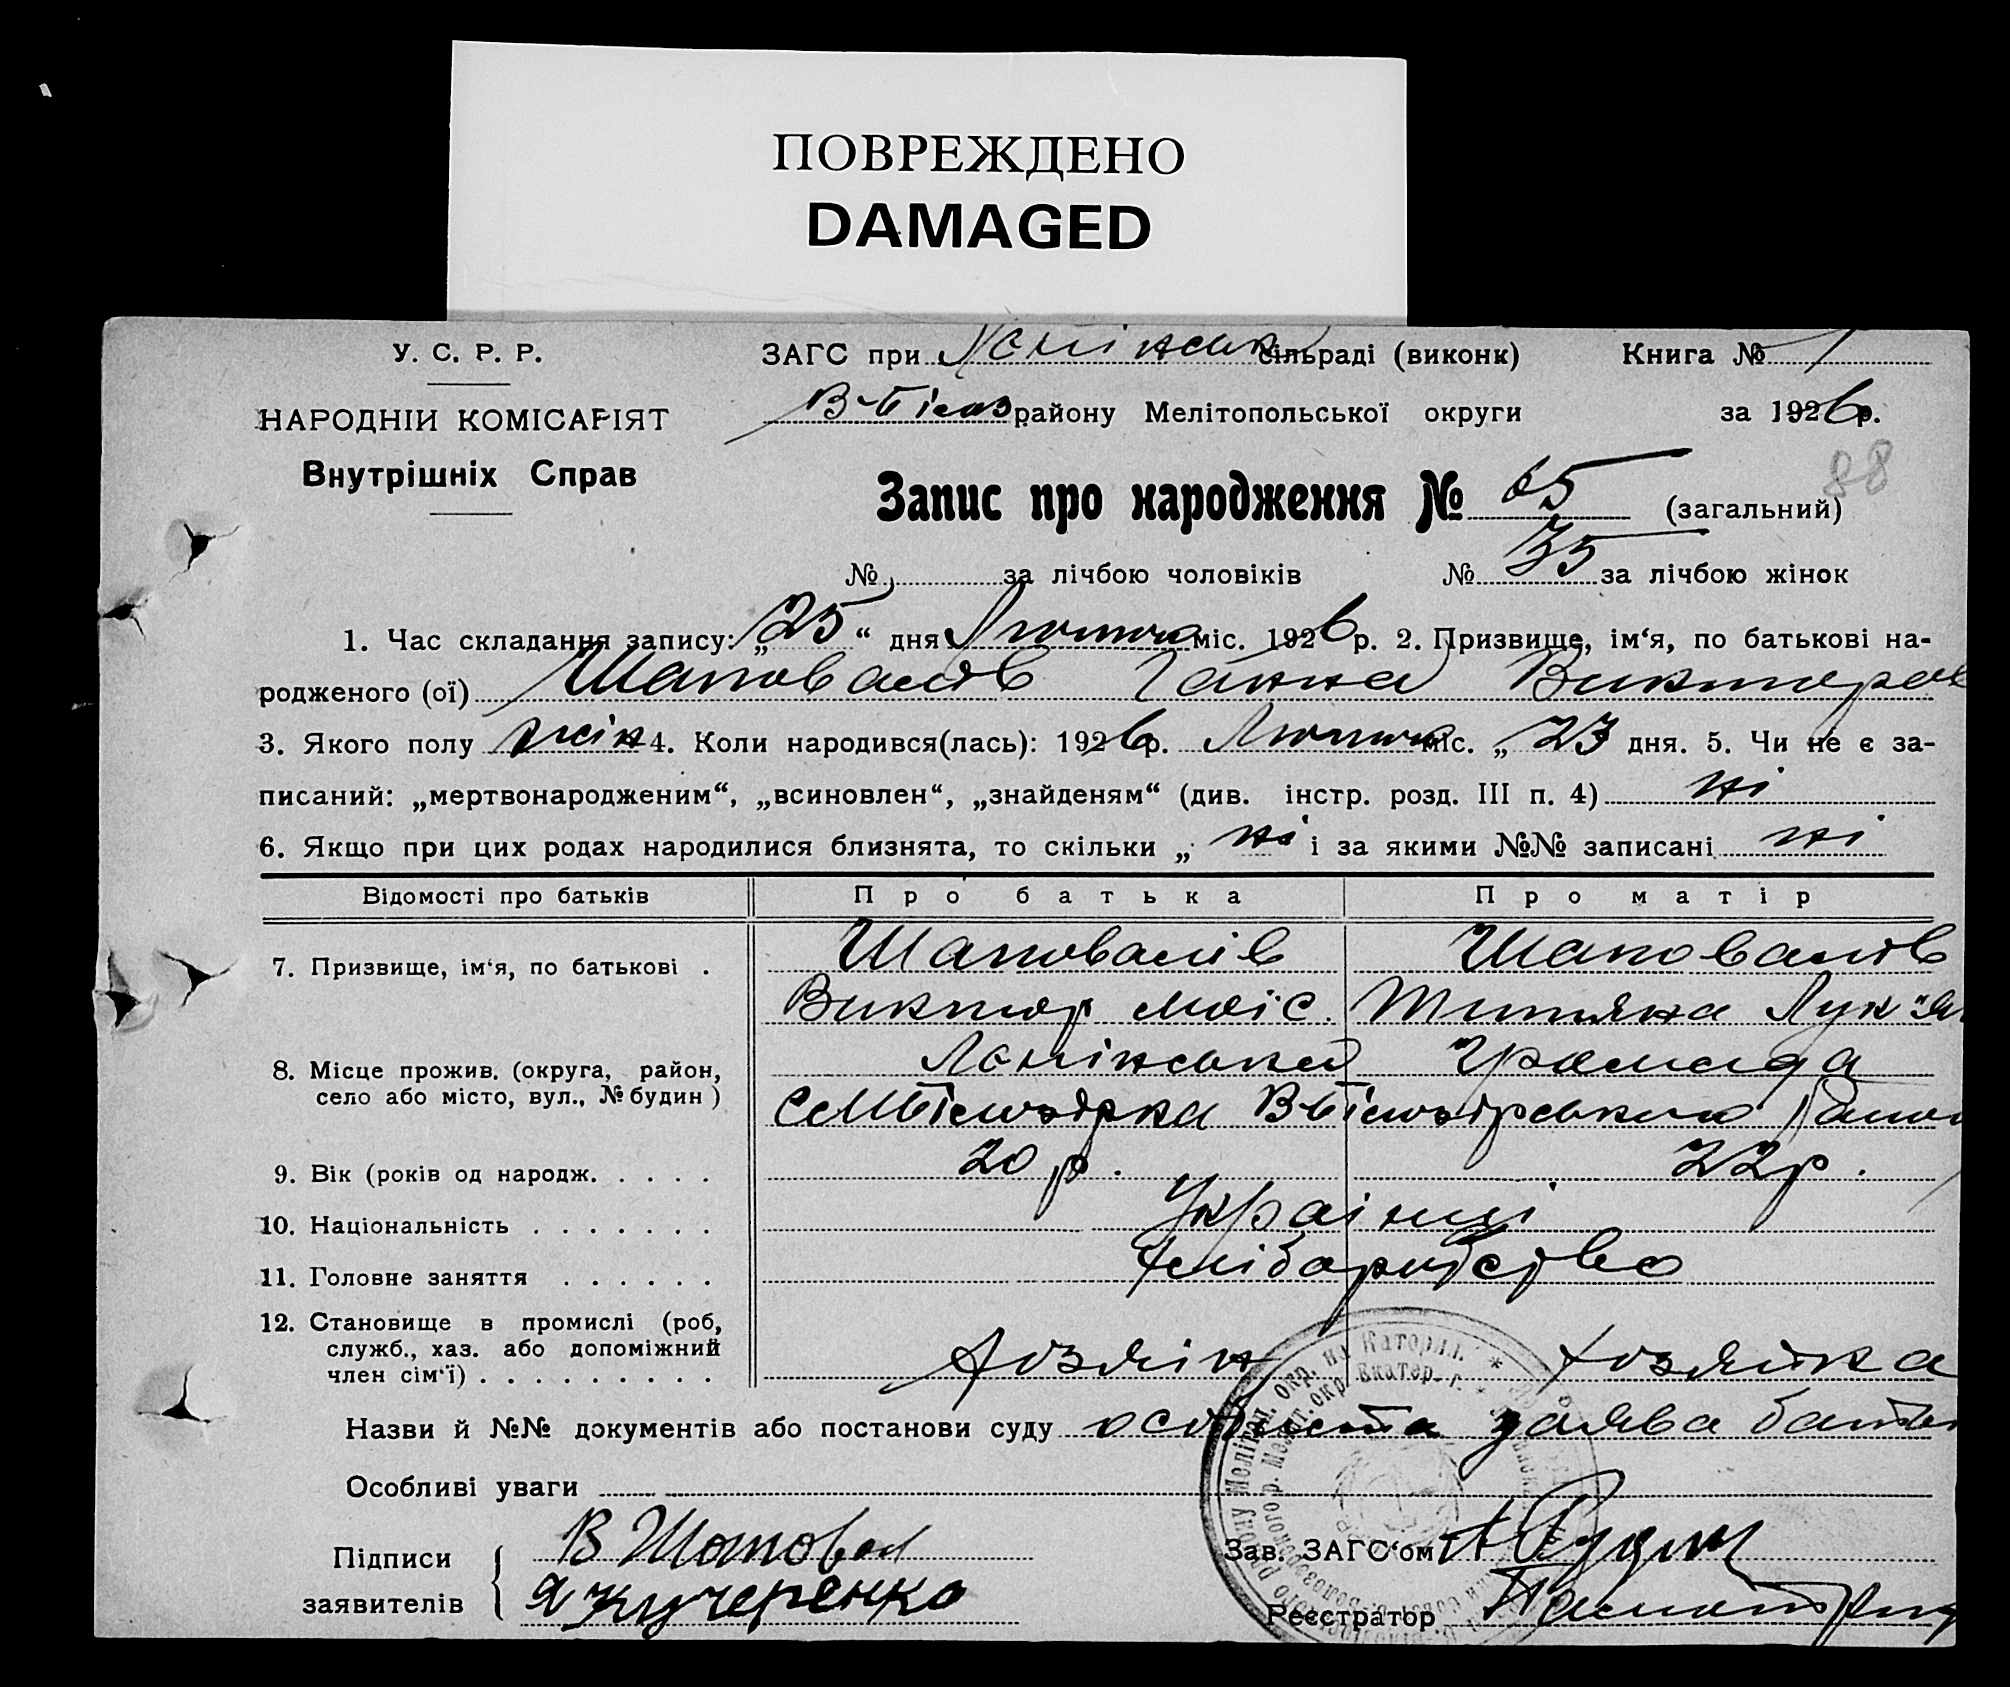 ПОВРЕЖДЕНО
DAMAGED
У. С. Р. Р.
ЗАГС при Ленінськ сільраді (виконк) Книга № 1
В-Білоз району Мелітопольської округи за 1926 р.
НАРОДНІЙ КОМІСАРІЯТ
Внутрішніх Справ
88
Запис про народження № 65 (загальний)
№ за лічбою чоловіків № 35 за лічбою жінок
1. Час складання запису: „25“ дня Лютого міс. 1926 р. 2. Призвище, ім‘я, по батькові на-
родженого (ої) Шаповалів Ганна Виктоpов
3. Якого полу жін 4. Коли народився(лась): 1926 р. Лютого міс. „23 дня. 5. Чи не є за-
писаний: „мертвонародженим“, „всиновлен“, „знайденям“ (див. інстр. розд. III п. 4) ні
6. Якщо при цих родах народилися близнята, то скільки „ ні і за якими №№ записані ні
Відомості про батьків Про батька Про матір
7. Призвище, ім‘я, по батькові . Шаповалів Шаповалів
Виктор Моіс. Титяна Лук"ян
8. Місце прожив. (округа, район, село або місто, вул., № будин) Ленінської громада
Білозірка В-Білозірського
9. Вік (років од народж. . . . . 20 р. 22 р.
10. Національність . . . . . . . Українці
11. Головне заняття . . . . . . хліборобство
12. Становище в промислі (роб, служб., хаз. або допоміжний член сім‘ї) . . . . . . . . . Хозяїн Хозяйка
Назви й №№ документів або постанови суду особиста заява батьк
Особливі уваги
Підписи В Шаповал Зав. ЗАГС‘ом
заявителів Я Кучеренко Реєстратор